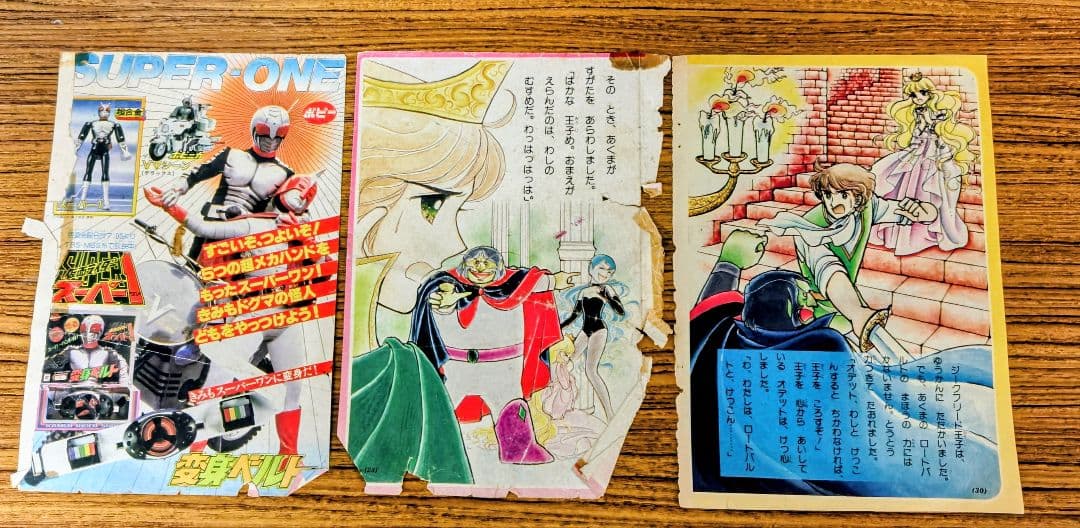 SUPER-ONE
ポピー
超合金
すごいぞ、つよいぞ！
5つの超メカハンドを
もったスーパーワン！
きみもドグマの怪人
どもをやっつけよう！
きみもスーパーワンに変身だ！
スーパー1
変身ベルト
変身ベルト
その とき、あくまが
すがたを あらわしました。
「ばかな 王子め。おまえが
えらんだのは、わしの
むすめだ。わっはっはっは」
ジークフリード王子は、
ゆうかんに たたかいました。
でも、あくまの ロートバ
ルトの まほうの 力には
かないません。とうとう
きずついて たおれました。
「オデット、わしと けっこ
んすると ちかわなければ、
王子を ころすぞ！」
王子を 心から あいして
いる オデットは、けっ心
しました。
「わ、わたしは、ロートバル
トと、けっこん………。」
(30)